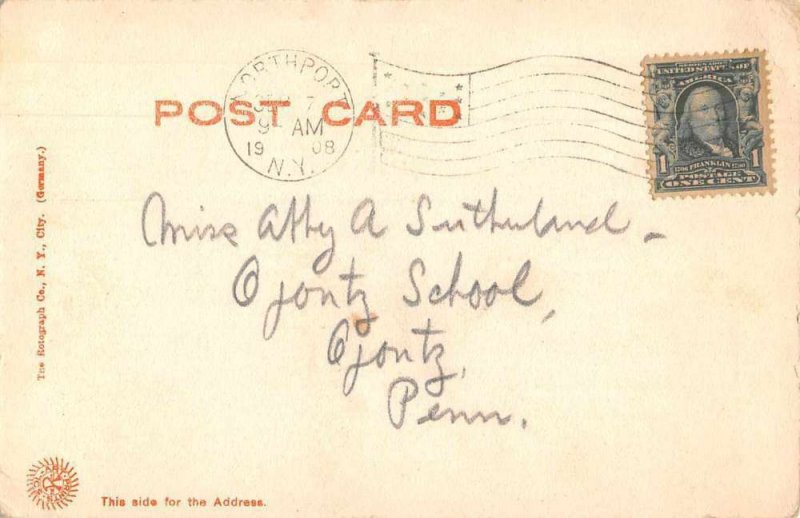 NORTHPORT
7
9- AM
1908
N.Y.
POST CARD
SERIES 1902
UNITED STATES OF
AMERICA
1 FRANKLIN 1
POSTAGE
ONE CENT
Miss Abby A Sutherland -
Ogontz School,
Ogontz,
Penn.
The Rotograph Co., N. Y., City. (Germany.)
This side for the Address.